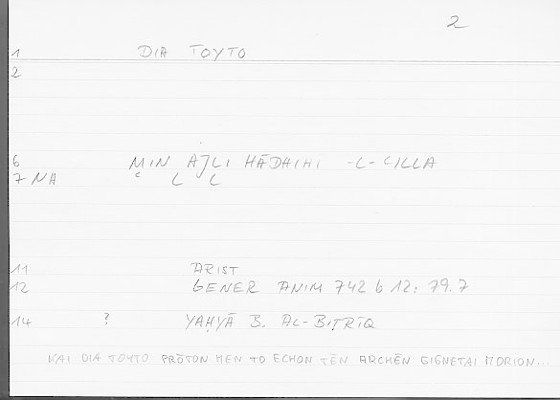 2
1 DIA TOYTO
2
6 MIN AJLI HĀDAIHI -L-CILLA
7 NA C L L
11 ARIST
12 GENER ANIM 742 b 12: 79.7
14 ? YAḤYĀ B. AL-BIṬRĪQ
KAI DIA TOYTO PRŌTON MEN TO ECHON TĒN ARCHĒN GIGNETAI MORION...